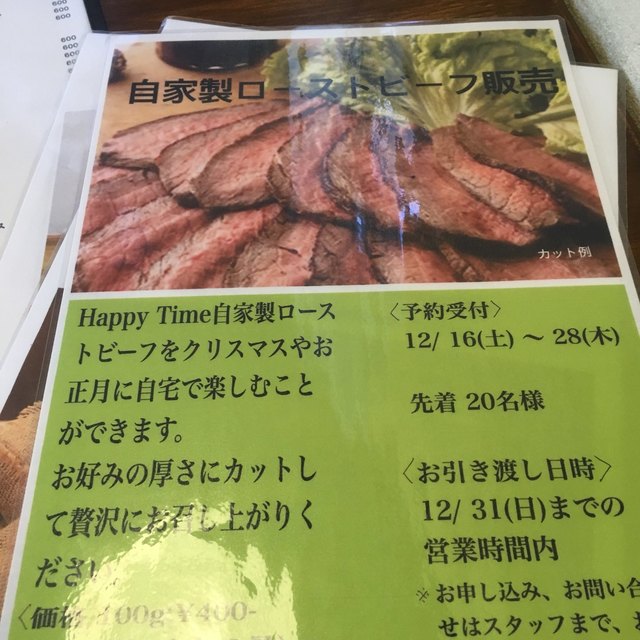 600
600
600
600
自家製ローストビーフ販売
カット例
Happy Time自家製ロース
トビーフをクリスマスやお
正月に自宅で楽しむこと
ができます。
お好みの厚さにカットし
て贅沢にお召し上がりく
ださい。
〈価格 100g:¥400-
〈予約受付〉
12/ 16(土) ～ 28(木)
先着 20名様
〈お引き渡し日時〉
12/ 31(日)までの
営業時間内
※お申し込み、お問い合
せはスタッフまで、お